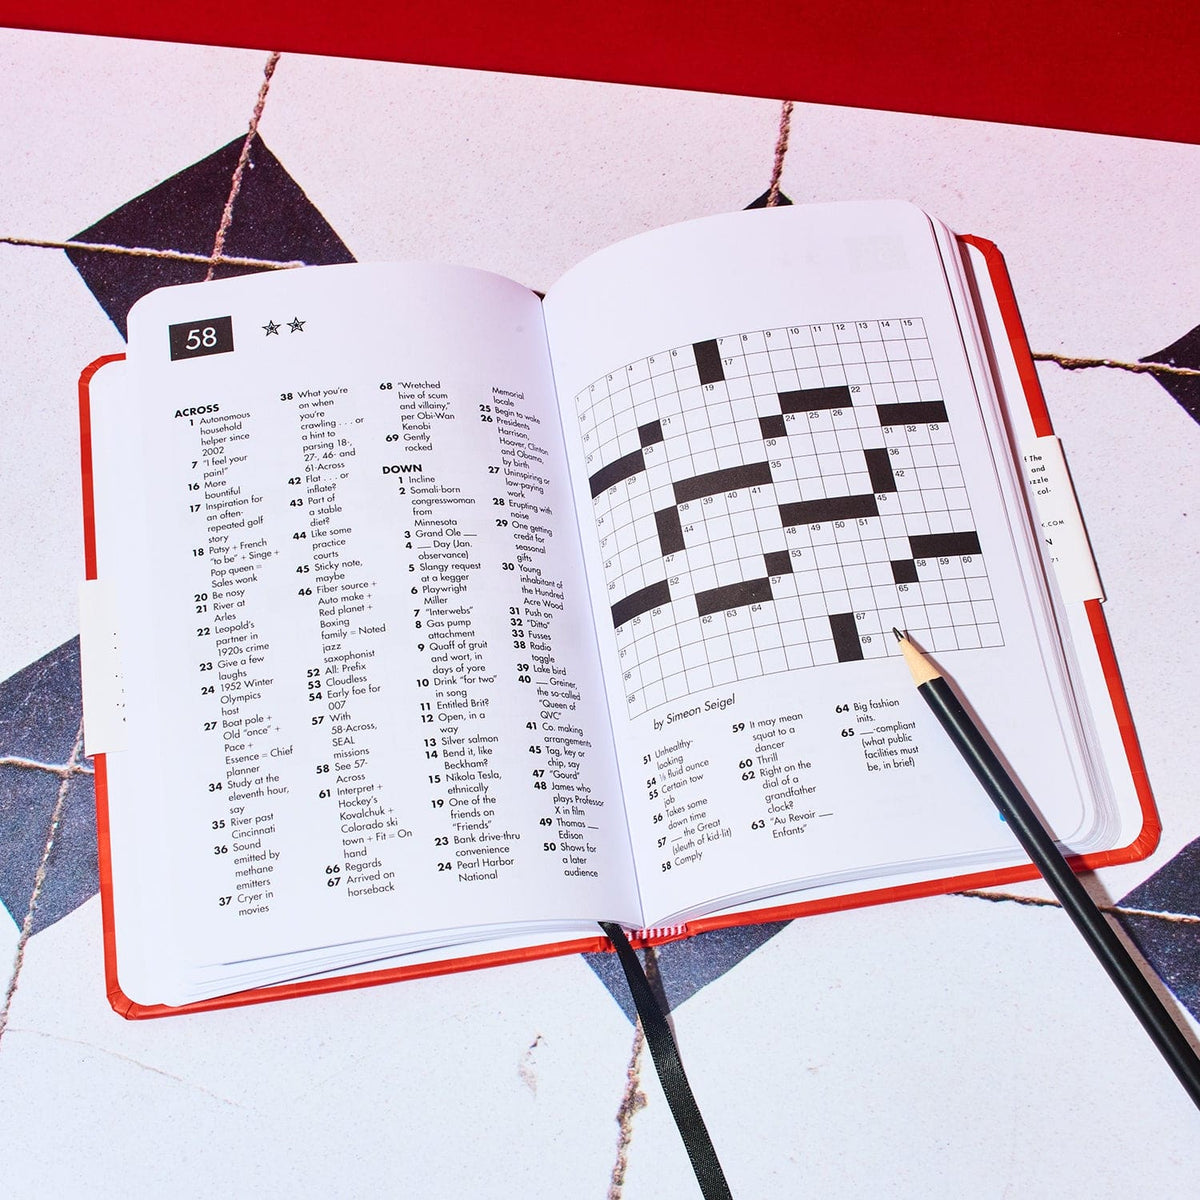 58
ACROSS
1 Autonomous
household
helper since
2002
7 "I feel your
pain!"
16 More
bountiful
17 Inspiration for
an often-
repeated golf
story
18 Patsy + French
"to be" + Singe +
Pop queen =
Sales wonk
20 Be nosy
21 River at
Arles
22 Leopold's
partner in
1920s crime
23 Give a few
laughs
24 1952 Winter
Olympics
host
27 Boat pole +
Old "once" +
Pace +
Essence = Chief
planner
34 Study at the
eleventh hour,
say
35 River past
Cincinnati
36 Sound
emitted by
methane
emitters
37 Cryer in
movies
38 What you're
on when
you're
crawling . . . or
a hint to
parsing 18-,
27-, 46- and
61-Across
42 Flat . . . or
inflate?
43 Part of
a stable
diet?
44 Like some
practice
courts
45 Sticky note,
maybe
46 Fiber source +
Auto make +
Red planet +
Boxing
family = Noted
jazz
saxophonist
52 All: Prefix
53 Cloudless
54 Early foe for
007
57 With
58-Across,
SEAL
missions
58 See 57-
Across
61 Interpret +
Hockey's
Kovalchuk +
Colorado ski
town + Fit = On
hand
66 Regards
67 Arrived on
horseback
68 "Wretched
hive of scum
and villainy,"
per Obi-Wan
Kenobi
69 Gently
rocked
DOWN
1 Incline
2 Somali-born
congresswoman
from
Minnesota
3 Grand Ole ___
4 ___ Day (Jan.
observance)
5 Slangy request
at a kegger
6 Playwright
Miller
7 "Interwebs"
8 Gas pump
attachment
9 Quaff of gruit
and wort, in
days of yore
10 Drink "for two"
in song
11 Entitled Brit?
12 Open, in a
way
13 Silver salmon
14 Bend it, like
Beckham?
15 Nikola Tesla,
ethnically
19 One of the
friends on
"Friends"
23 Bank drive-thru
convenience
24 Pearl Harbor
National
Memorial
locale
25 Begin to wake
26 Presidents
Harrison,
Hoover, Clinton
and Obama,
by birth
27 Uninspiring or
low-paying
work
28 Erupting with
noise
29 One getting
credit for
seasonal
gifts
30 Young
inhabitant of
the Hundred
Acre Wood
31 Push on
32 "Ditto"
33 Fusses
38 Radio
toggle
39 Lake bird
40 ___ Greiner,
the so-called
"Queen of
QVC"
41 Co. making
arrangements
45 Tag, key or
chip, say
47 "Gourd"
48 James who
plays Professor
X in film
49 Thomas ___
Edison
50 Shows for
a later
audience
1 2 3 4 5 6 7 8 9 10 11 12 13 14 15
16 17
18 19
20 21 22
23 24 25 26
27 28 29 30 31 32 33
34 35 36
37 38 39 40 41 42
43 44 45
46 47 48 49 50 51
52 53
54 55 56 57 58 59 60
61 62 63 64 65
66 67
68 69
by Simeon Seigel
51 Unhealthy-
looking
54 ⅛ fluid ounce
55 Certain tow
job
56 Takes some
down time
57 ___ the Great
(sleuth of kid-lit)
58 Comply
59 It may mean
squat to a
dancer
60 Thrill
62 Right on the
dial of a
grandfather
clock?
63 "Au Revoir ___
Enfants"
64 Big fashion
inits.
65 ___-compliant
(what public
facilities must
be, in brief)
The
and